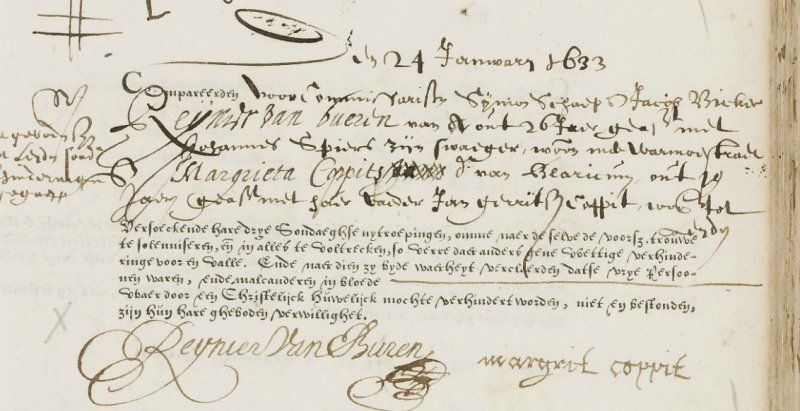 den 24 Januarij 1633
Compareerden voor Commissarissen Symon Schaep & Jacob Bicker
Reynier van Bueren van A out 26 Jaer geass met
Johannes Spiers zijn swaeger, woon inde warmoestraet
& Margrieta Coppits van Blaricum, out
Jaeren geass met haer vader Jan gerritsz Coppit, woon tot
Versoeckende hare drye Sondaeghse uytroepingen, omme naer de selve de voorsz. trouwe
te solenniseren, en in alles te voltrecken, so verre daer anders gene wettige verhinde-
ringe voor en valle. Ende naer dien zy byde waerheyt verclaerden datse vrye Persoo-
nen waren, ende malcanderen in bloede
Waer door een Christelijck Huwelijck mochte verhindert worden, niet en bestonden,
zijn hun hare gheboden verwillighet.
Reynier Van Buren
margrit coppit